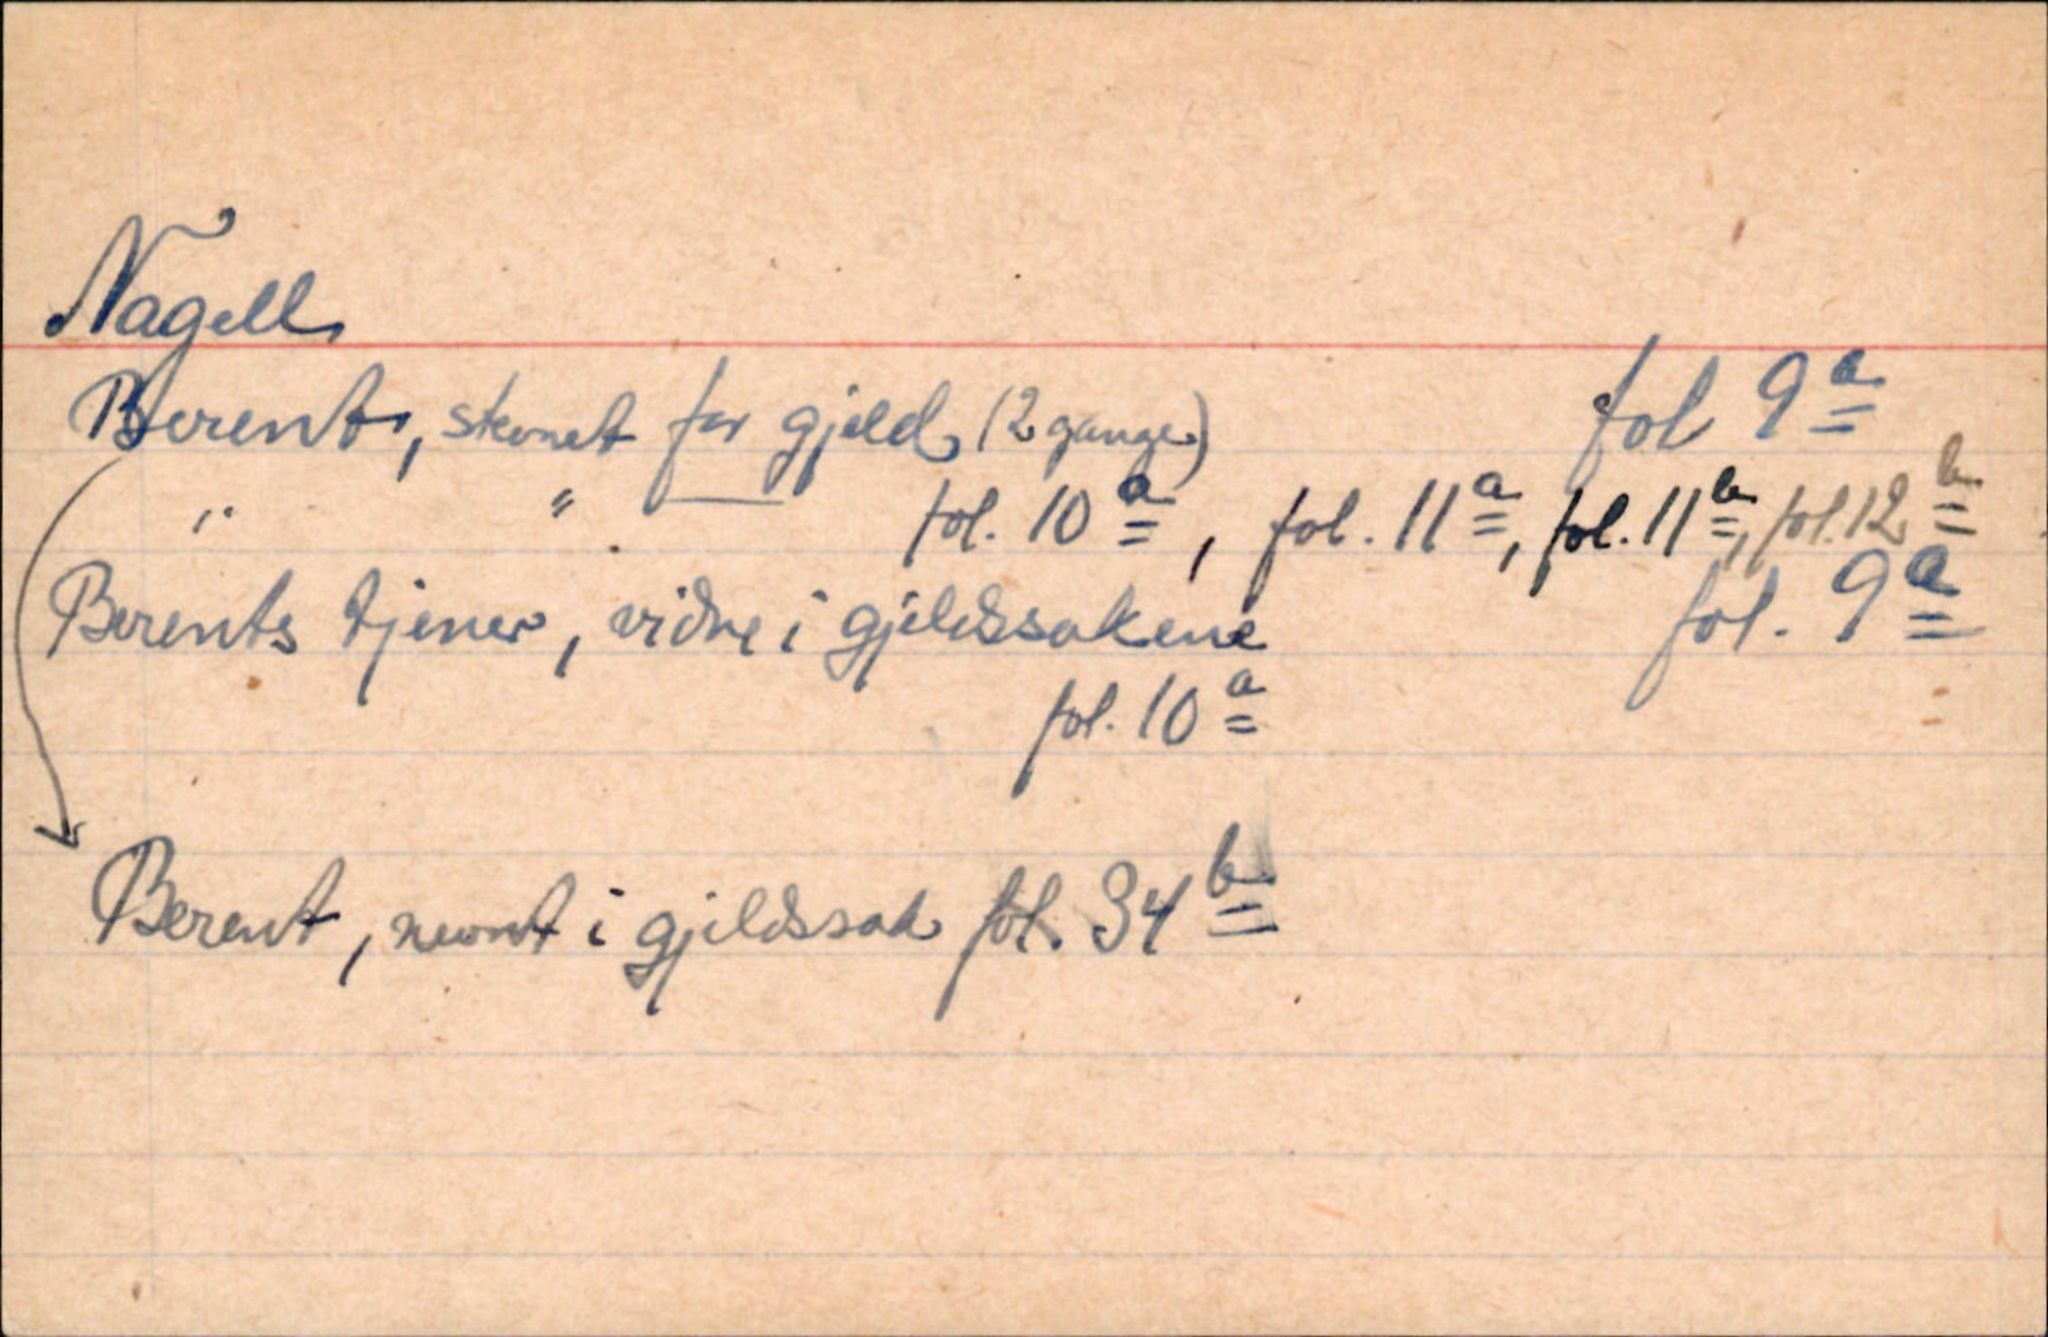 Nagell
Berent, stevnet for gjeld (2 gange) fol 9 a
" " — fol. 10 a, fol. 11 a, fol. 11 b, fol. 12 b
Berents tjener, vidne i gjeldssakene fol. 9 a
fol. 10 a
Berent, nevnt i gjeldssak fol. 34 b